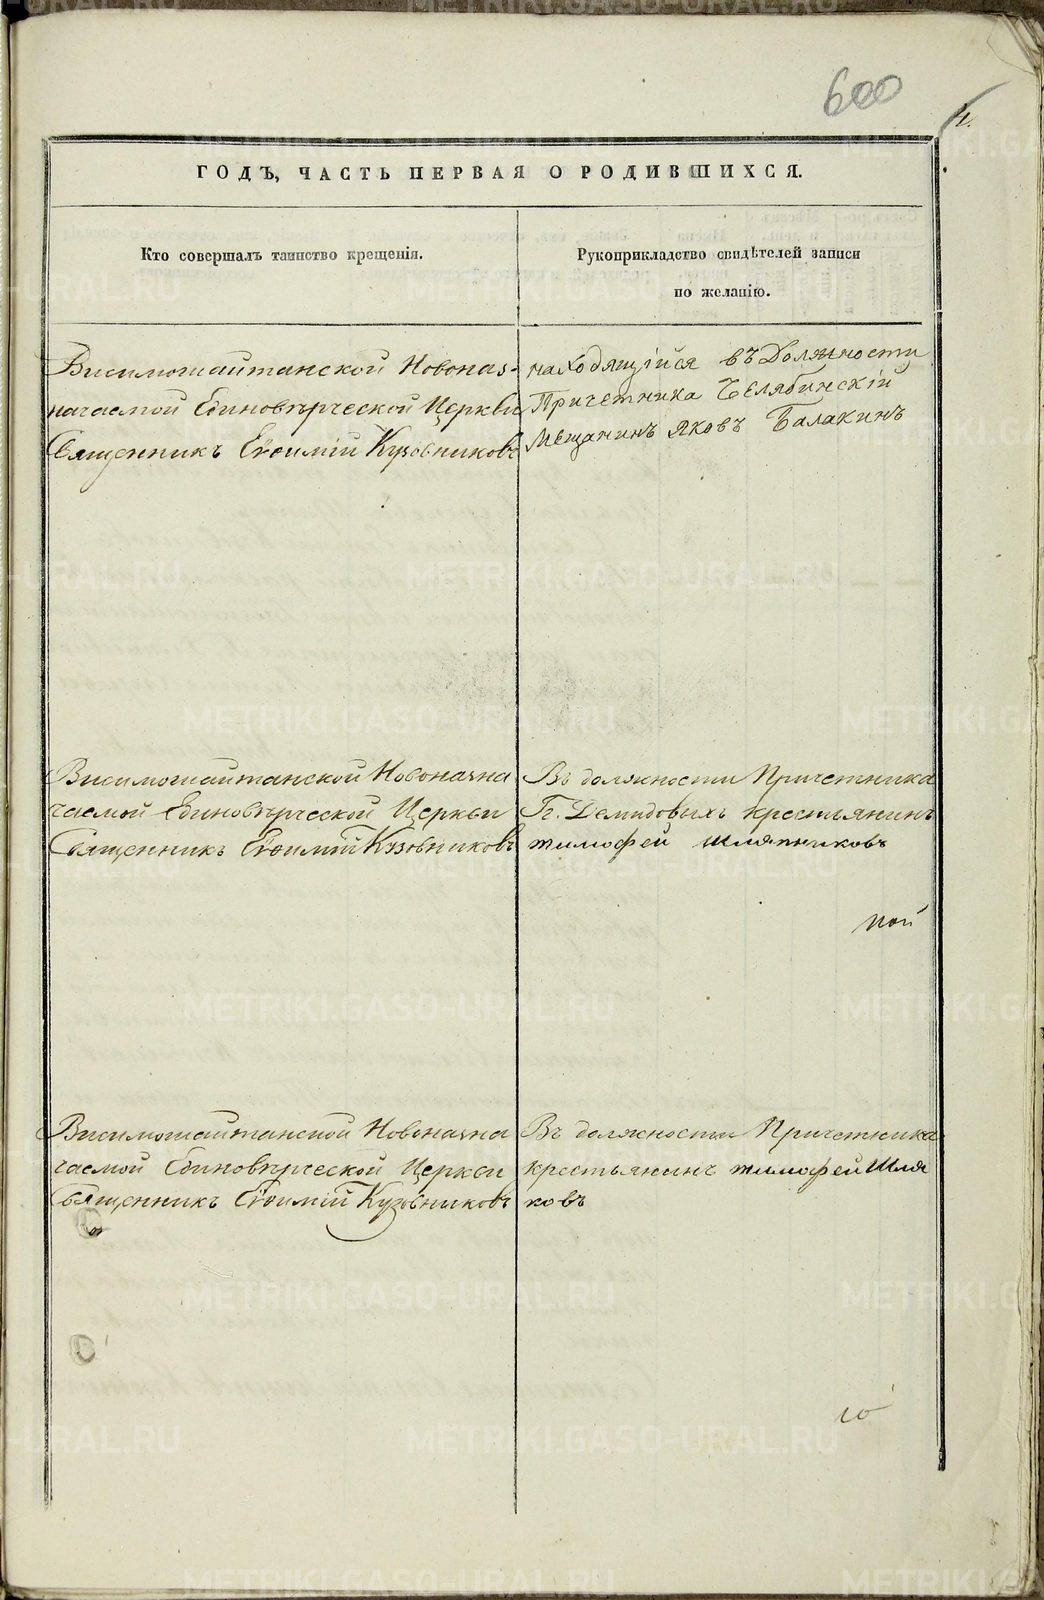 600
4.
ГОДЪ, ЧАСТЬ ПЕРВАЯ О РОДИВШИХСЯ.
Кто совершалъ таинство крещенія.
Рукоприкладство свидѣтелей записи
по желанію.
Висимошайтанской Новоназ-
начаемой Единовѣрческой Церкви
Священникъ Евѳимій Кузовниковъ
находящійся въ Должности
Причетника Челябинскій
Мещанинъ Яковъ Балакинъ
Висимошайтанской Новоназна
чаемой Единовѣрческой Церкви
Священникъ Евѳимій Кузовниковъ
Въ должности Причетника
Гг. Демидовыхъ крестьянинъ
тимофей шляпниковъ
ной
Висимошайтанской Новоназна
чаемой Единовѣрческой Церкви
Священникъ Евѳимій Кузовниковъ
Въ должности Причетника
крестьянинъ тимофей Шля
ковъ
го
METRIKI.GASO-URAL.RU